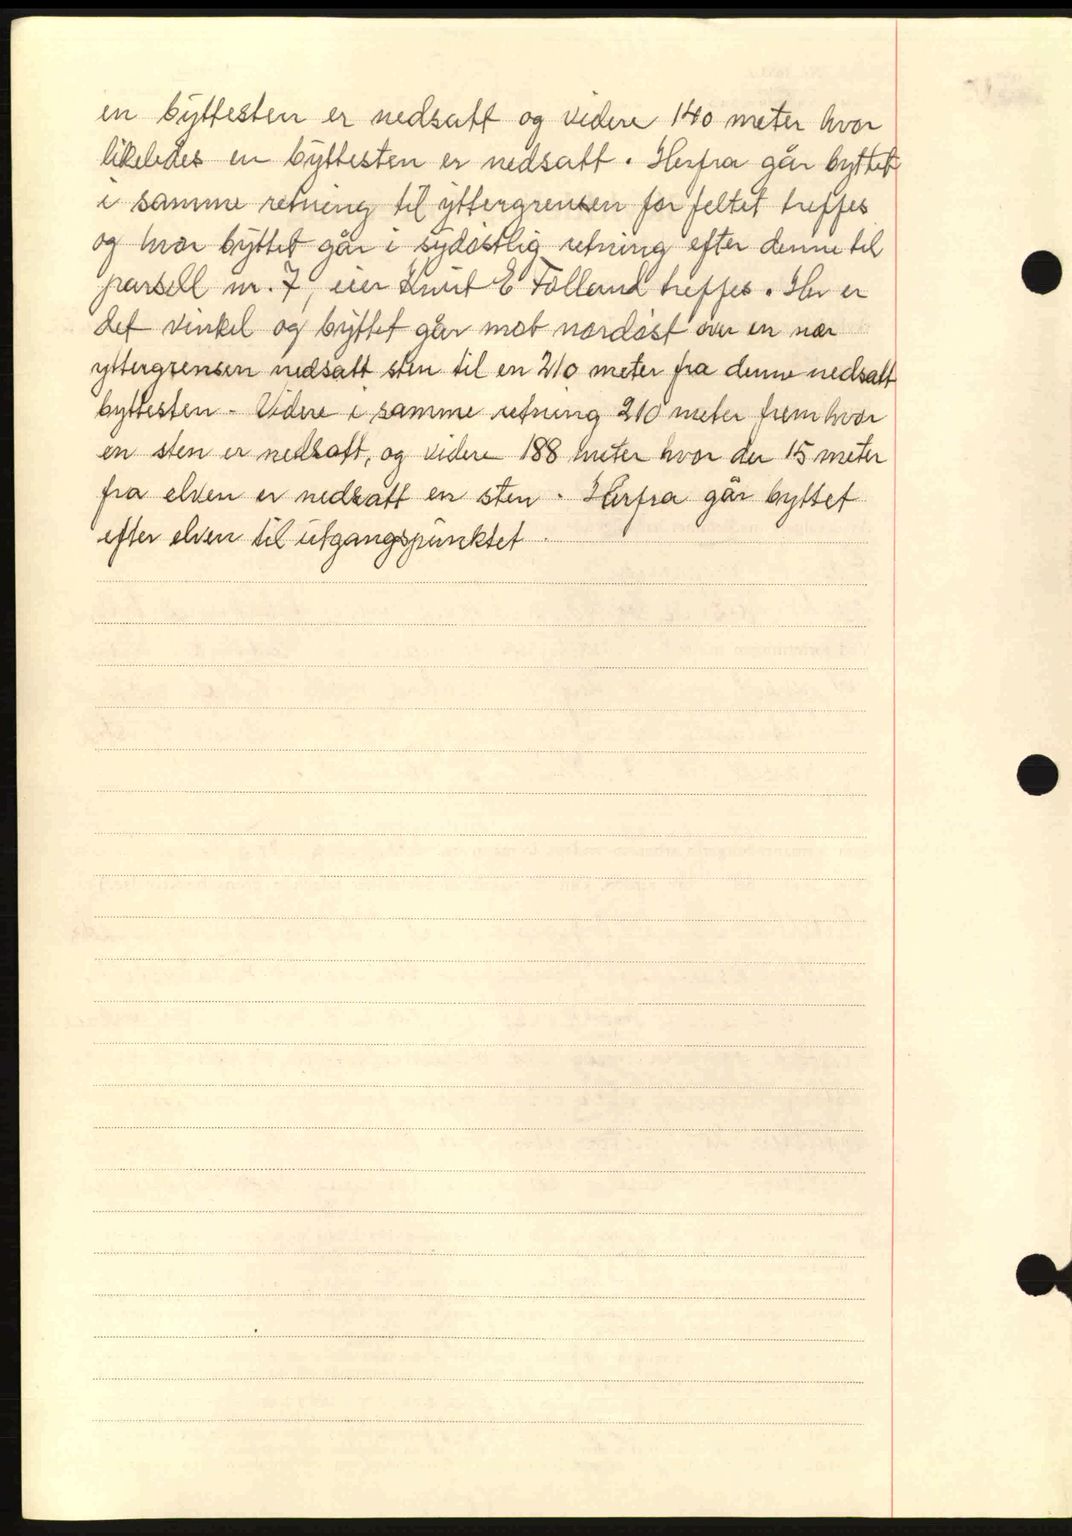 en byttesten er nedsatt og videre 140 meter hvor
likeledes en byttesten er nedsatt. Herfra går byttet
i samme retning til yttergrensen for feltet treffes
og hvor byttet går i sydøstlig retning efter denne til
parsell nr. 7, eier Knut E Folland treffes. Her er
det vinkel og byttet går mot nordøst over en nær
yttergrensen nedsatt sten til en 210 meter fra denne nedsatt
byttesten - Videre i samme retning 210 meter frem hvor
en sten er nedsatt, og videre 188 meter hvor der 15 meter
fra elven er nedsatt en sten. Herfra går byttet
efter elven til utgangspunktet.